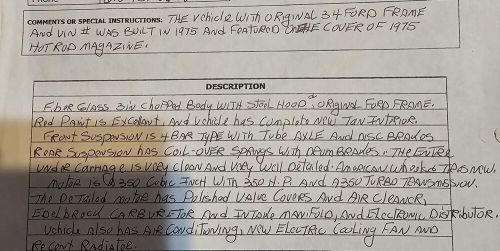 COMMENTS OR SPECIAL INSTRUCTIONS: THE Vehicle WITH ORIGINAL 34 FORD FRAME
And VIN # WAS BUILT IN 1975 And FEATUROD ON THE COVER OF 1975
HOT ROD MAGAZINE.
DESCRIPTION
FibeR GLASS 3in ChoPPed Body WITH STEEL HOOD, ORIGINAL FORD FRAME.
Red PAINT is EXCELANT, And Vehicle has Complete New TAN INTERIOR.
FRONT SUSPENSION IS 4 BAR TYPE WITH Tube AXLE And DISC BRAKES
REAR SUSPENSION HAS COIL-OVER SPRINGS WITH DRUM BRAKES. THE ENTIRE
UNDER CARRIAGE IS VERY CLEAN And VERY Well DeTAILed. AMERICAN Wheels & TIRES NEW.
MOTOR IS A 350 Cubic INCH WITH 350 H.P. And A 350 TURBO TRANSMISSION.
THE DeTAILed MOTOR HAS Polished VALVE COVERS And AIR CLEANER,
EDELBROCK CARBURETOR And INTAKE MANIFOLD, And ELECTRONIC DISTRIBUTOR.
Vehicle Also has AIR CONDITIONING, NEW ELECTRIC COOLING FAN AND
RECENT RADIATOR.